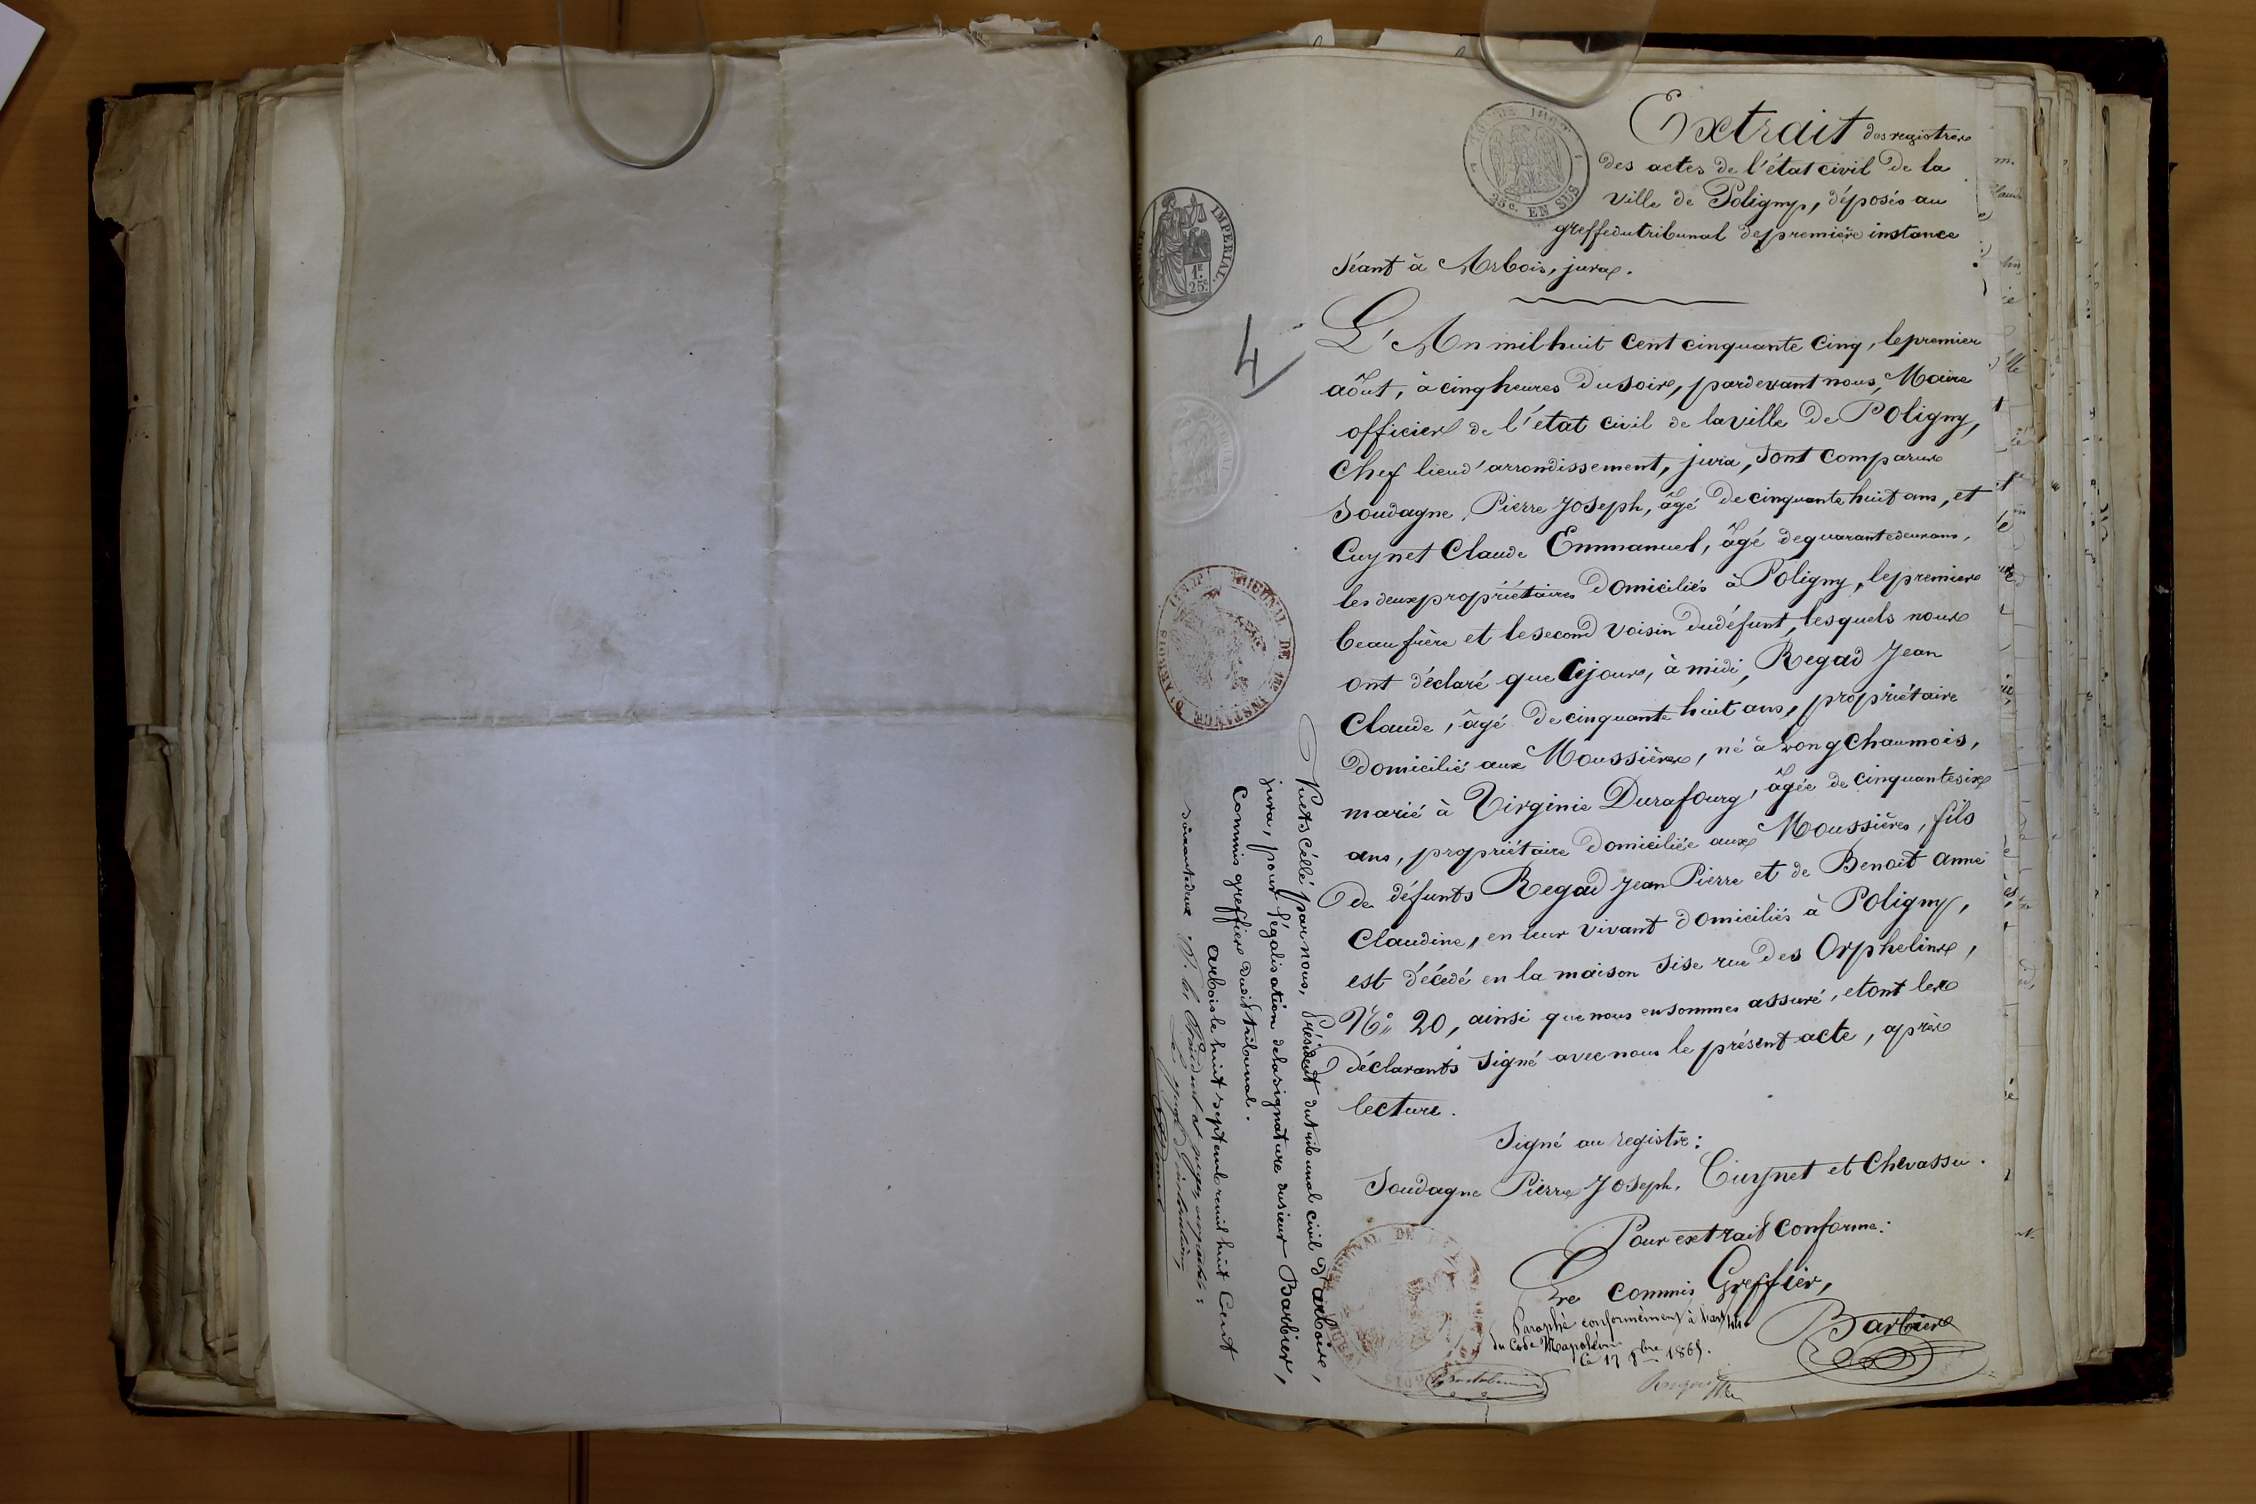 Extrait des registres
des actes de l'état civil de la
ville de Poligny, déposés au
greffe du tribunal de première instance
séant à Arbois, jura.
L'An mil huit cent cinquante cinq, le premier
août, à cinq heures du soir, pardevant nous, Maire
officier de l'état civil de la ville de Poligny,
chef lieu d'arrondissement, jura, sont comparus
Soudagne Pierre Joseph, âgé de cinquante huit ans, et
Cuynet Claude Emmanuel, âgé de quarante deux ans,
les deux propriétaires domiciliés à Poligny, le premier
beau frère et le second voisin du défunt, lesquels nous
ont déclaré que cejour, à midi, Regad Jean
Claude, âgé de cinquante huit ans, propriétaire
domicilié aux Moussières, né à Longchaumois,
marié à Virginie Durafourg, âgée de cinquante six
ans, propriétaire domiciliée aux Moussières, fils
de défunts Regad Jean Pierre et de Benoit Anne
Claudine, en leur vivant domiciliés à Poligny,
est décédé en la maison sise rue des Orphelins,
N° 20, ainsi que nous en sommes assuré, et ont les
déclarants signé avec nous le présent acte, après
lecture.
Signé au registre:
Soudagne Pierre Joseph, Cuynet et Chevassu.
Pour extrait conforme:
Le commis Greffier,
Barbier
Paraphé conformément à
du Code Napoléon
le 17 8bre 1865.
4
TIMBRE IMPERIAL
1F. 25c.
25c. EN SUS
TRIBUNAL DE 1re INSTANCE D'ARBOIS
TRIBUNAL DE
Vu et Scéllé par nous, Président du tribunal civil d'arbois,
jura, pour légalisation de la signature du sieur Barbier,
Commis greffier dudit tribunal.
arbois le huit septembre mil huit Cent
soixante deux P. le Président et juges empêchés:
Le juge d'instruction,